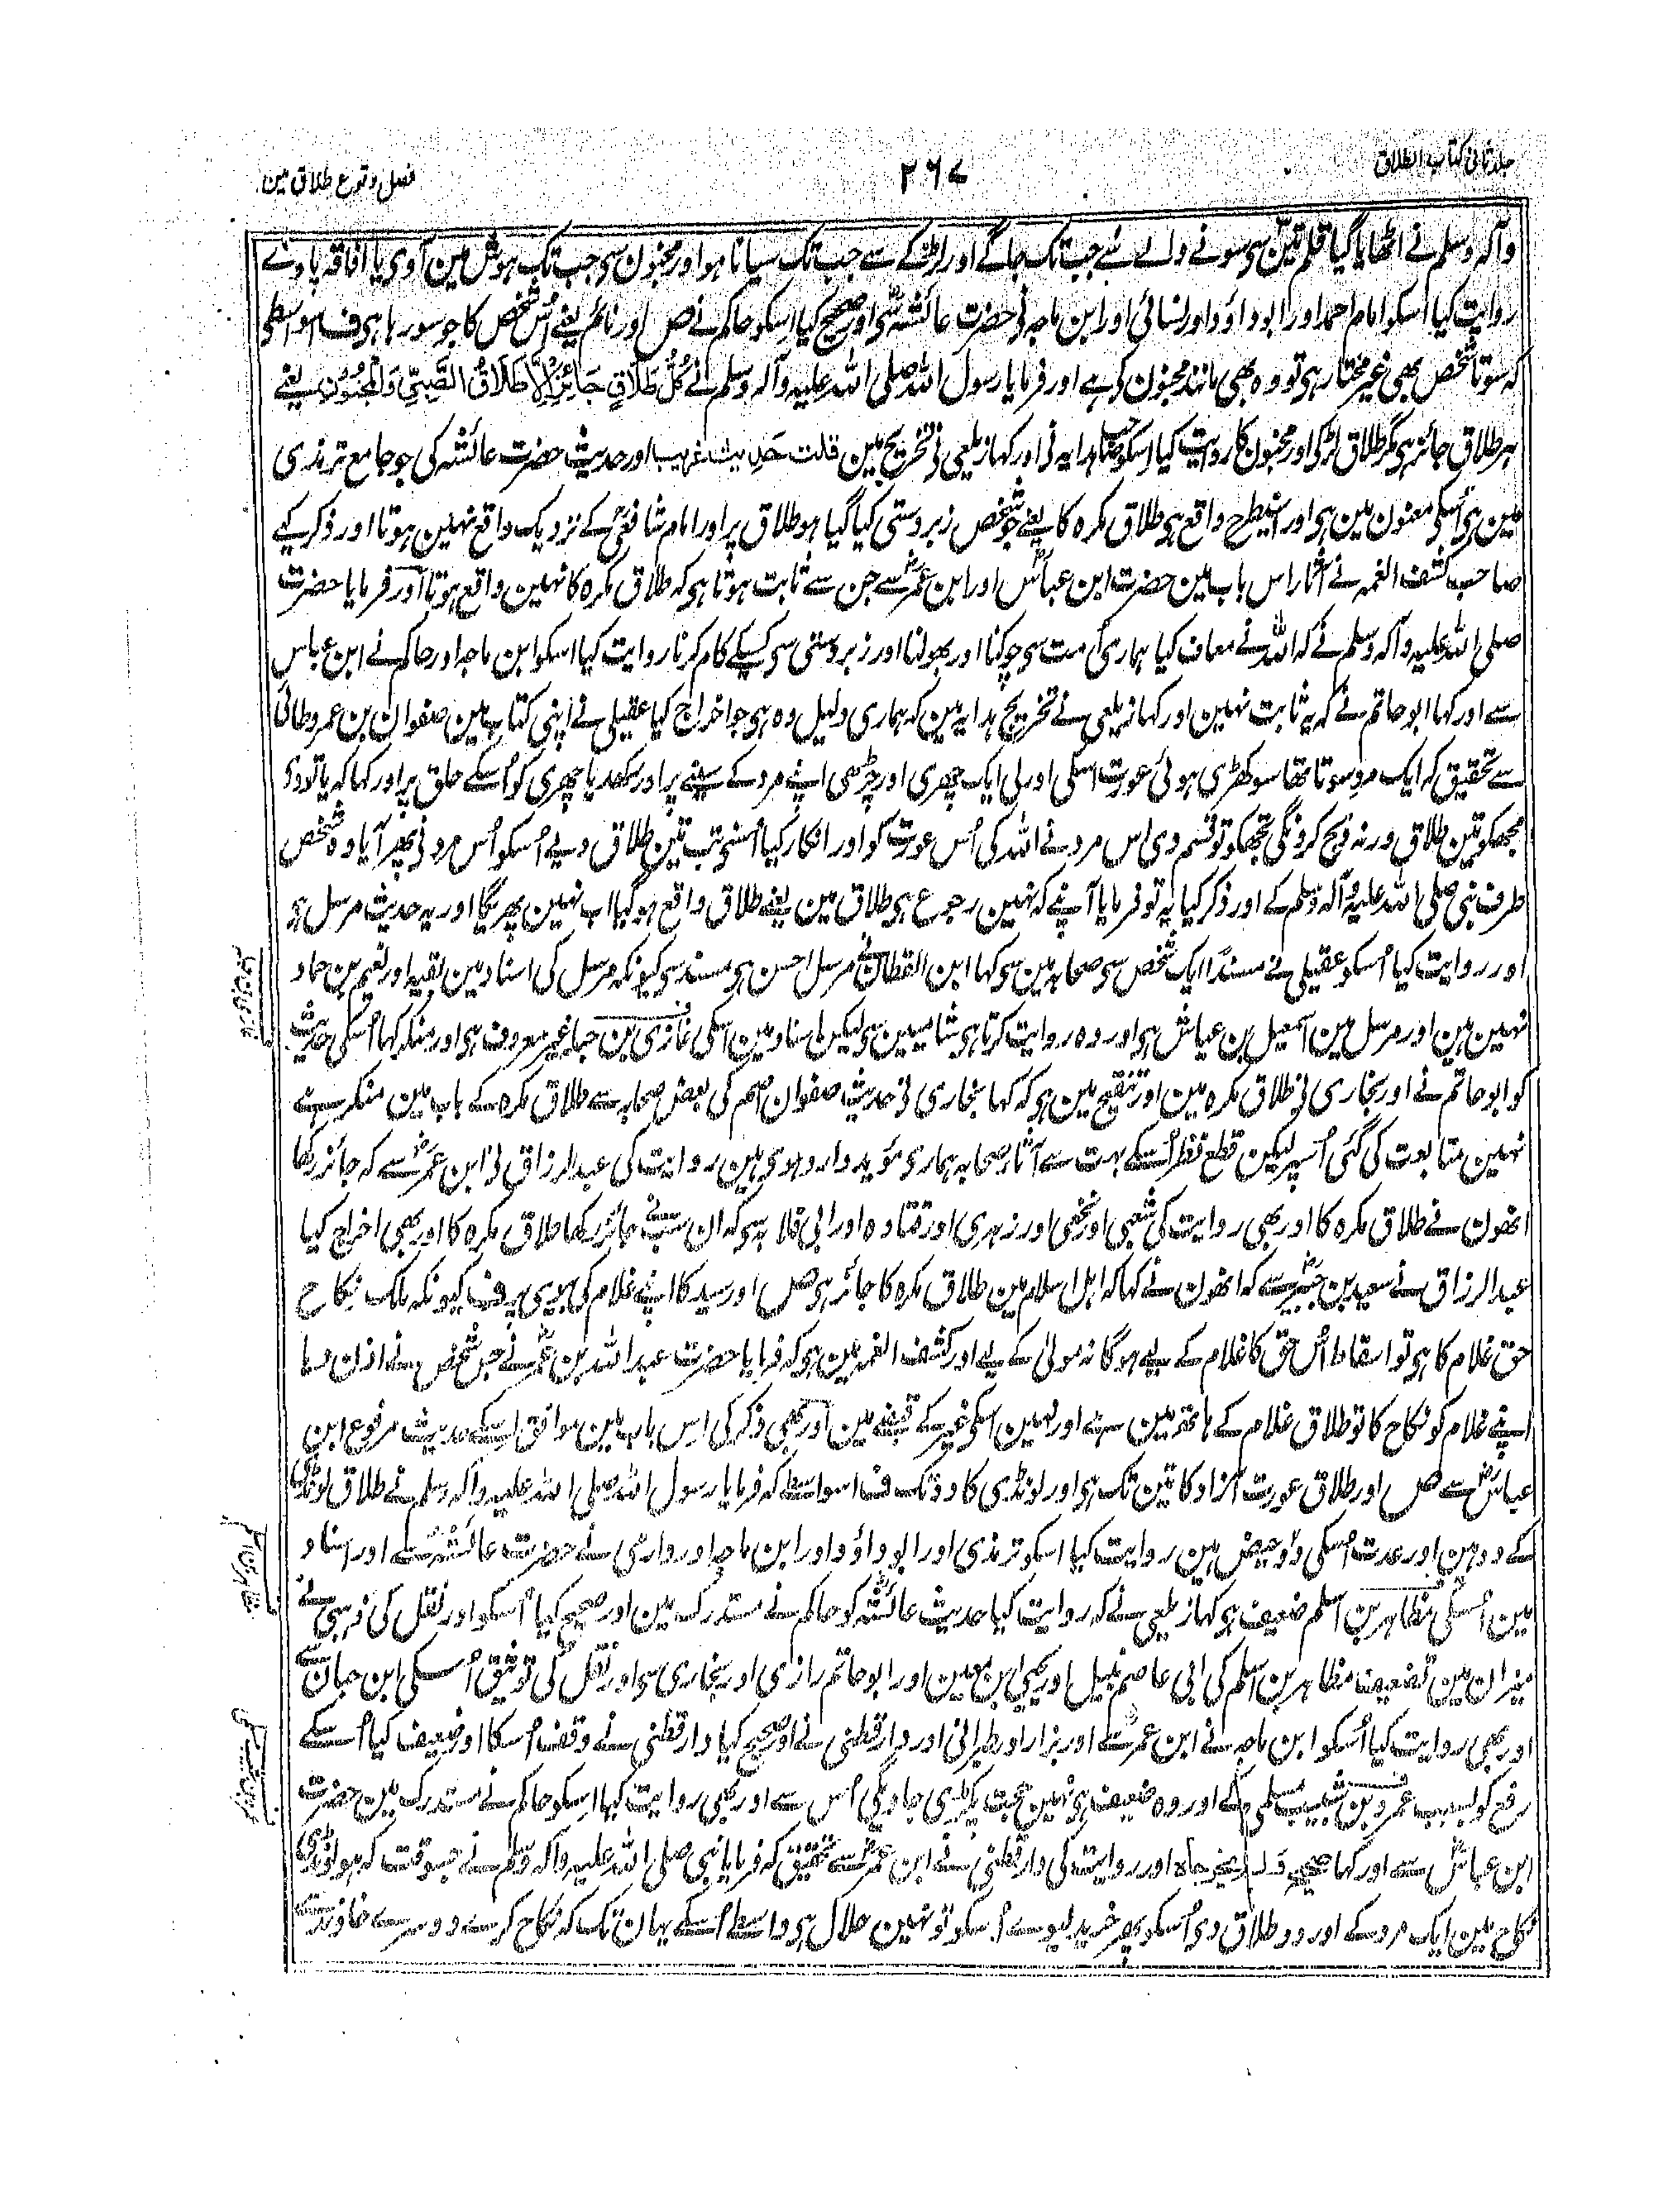 جلد ثانی کتاب الطلاق
۲۶۷
فصل وقوع طلاق مین
وآلہ وسلم نے اٹھایا گیا قلم تین سی سونے والے سے جب تک جاگے اور لڑکے سے جب تک سیانا ہو اور مجنون سی جب تک ہوش مین آوی یا افاقہ پاوے
روایت کیا اسکو امام احمد اور ابو داؤد اور نسائی اور ابن ماجہ نی حضرت عائشہ سی اور صحیح کیا اسکو حاکم نے ص اور نائم یعنے اُس شخص کا جو سو رہا ہی ف اسواسطی
کہ سوتا شخص بھی غیر مختار ہی تو وہ بھی مانند مجنون کے ہے اور فرمایا رسول اللہ صلی اللہ علیہ وآلہ وسلم نے كُلُّ طَلَاقٍ جَائِزٌ إِلَّا طَلَاقُ الصَّبِيِّ وَالْمَجْنُونِ یعنے
ہر طلاق جائز ہی مگر طلاق لڑکی اور مجنون کا روایت کیا اسکو صاحب ہدایہ نی اور کہا زیلعی نی تخریج مین قلت حدیث غریب اور حدیث حضرت عائشہ کی جو جامع ترمذی
مین ہی اُسکی معنون مین ہی اور اسیطرح واقع ہی طلاق مکرہ کا یعنے جو شخص زبردستی کیا گیا ہو طلاق پر اور امام شافعیؒ کے نزدیک واقع نہین ہوتا اور ذکر کیے
صاحب کشف الغمہ نے آثار اس باب مین حضرت ابن عباسؓ اور ابن عمرؓ سے جن سے ثابت ہوتا ہی کہ طلاق مکرہ کا نہین واقع ہوتا اور فرمایا حضرت
صلی اللہ علیہ وآلہ وسلم نے کہ اللہ نے معاف کیا ہماری اُمت سی چوکنا اور بھولنا اور زبردستی سی کسیکے کام کرنا روایت کیا اسکو ابن ماجہ اور حاکم نے ابن عباس
سے اور کہا ابو حاتم نے کہ یہ ثابت نہین اور کہا زیلعی نے تخریج ہدایہ مین کہ ہماری دلیل وہ ہی جو اخراج کیا عقیلی نے اپنی کتاب مین صفوان بن عمرو طائی
سے تحقیق کہ ایک مرد سوتا تھا سو کھڑی ہوئی عورت اسکی اور لی ایک چھری اور چڑھی اپنے مرد کے سینے پر اور رکھدیا چھری کو اُسکے حلق پر اور کہا کہ یا تو دی
مجھکو تین طلاق ورنہ ذبح کرونگی تجھکو تو قسم دی اس مرد نے اللہ کی اُس عورت کو اور انکار کیا اُسنی تب تین طلاق دیے اُسکو اُس مرد نی پھر آیا وہ شخص
طرف نبی صلی اللہ علیہ وآلہ وسلم کے اور ذکر کیا یہ تو فرمایا آپنے کہ نہین رجوع ہی طلاق مین یعنے طلاق واقع ہو گیا اب نہین پھریگا اور یہ حدیث مرسل ہی
اور روایت کیا اُسکو عقیلی نے مسنداً ایک شخص سی صحابہ مین سی کہا ابن القطان نے مرسل احسن ہی مسند سی کیونکہ مرسل کی اسناد مین بقیہ اور نعیم بن حماد
نہین ہین اور مرسل مین اسمعیل بن عیاش ہی اور وہ روایت کرتا ہی شامیین سی لیکن اسناد مین اسکی غازی بن جبلہ غیر معروف ہی اور منکر کہا اُسکی حدیث
کو ابو حاتم نے اور بخاری نی طلاق مکرہ مین اور تنقیح مین ہی کہ کہا بخاری نی حدیث صفوان اصم کی بعض صحابہ سے طلاق مکرہ کے باب مین منکر ہے
نہین متابعت کی گئی اُسپر لیکن قطع نظر اُسکے بہت سے آثار صحابہ ہماری مؤید وارد ہوی ہین روایت کی عبدالرزاق نی ابن عمرؓ سے کہ جائز رکھا
انھون نے طلاق مکرہ کا اور بھی روایت کی شعبی اور نخعی اور زہری اور قتادہ اور ابی قلابہ سی کہ ان سب نے جائز رکھا طلاق مکرہ کا اور بھی اخراج کیا
عبدالرزاق نے سعید بن جبیر سے کہ انھون نے کہا کہ اہل اسلام مین طلاق مکرہ کا جائز ہی ص اور سید کا اپنے غلام کی بیوی پر ف کیونکہ ملک نکاح
حق غلام کا ہی تو اسقاط اُس حق کا غلام کے لیے ہوگا نہ مولیٰ کے لیے اور کشف الغمہ مین ہی کہ فرمایا حضرت عبداللہ بن عمرؓ نے جس شخص نے اذن دیا
اپنے غلام کو نکاح کا تو طلاق غلام کے ہاتھ مین ہے اور نہین اسکی غیر کے قبضے مین اور بھی ذکر کی اس باب مین موافق اسکے حدیث مرفوع ابن
عباسؓ سے ص اور طلاق عورت آزاد کا تین تک ہی اور لونڈی کا دو تک ف اسواسطے کہ فرمایا رسول اللہ صلی اللہ علیہ وآلہ وسلم نے طلاق لونڈی
کے دو ہین اور عدت اُسکی دو حیض ہین روایت کیا اسکو ترمذی اور ابو داؤد اور ابن ماجہ اور دارمی نے حضرت عائشہؓ سے اور اسناد
مین اُسکی مظاہر بن اسلم ضعیف ہی کہا زیلعی نے کہ روایت کیا حدیث عائشہؓ کو حاکم نے مستدرک مین اور صحیح کیا اُسکو اور نقل کی ذہبی نے
میزان مین تضعیف مظاہر بن اسلم کی ابی عاصم نبیل اور یحیی ابن معین اور ابو حاتم رازی اور بخاری سی اور نقل کی توثیق اُسکی ابن حبان سے
اور بھی روایت کیا اُسکو ابن ماجہ نے ابن عمرؓ سے اور بزار اور طبرانی اور دارقطنی نے اور صحیح کیا دارقطنی نے وقف اُسکا اور ضعیف کیا اُسکے
رفع کو بسبب عمرو بن شبیب مسلمی کے اور وہ ضعیف ہی نہین حجت پکڑی جاویگی اُس سے اور بھی روایت کیا اسکو حاکم نے مستدرک مین حضرت
ابن عباسؓ سے اور کہا صحیح ولم یخرجاہ اور روایت کی دارقطنی نے ابن عمرؓ سے تحقیق کہ فرمایا نبی صلی اللہ علیہ وآلہ وسلم نے جسوقت کہ ہو لونڈی
نکاح مین ایک مرد کے اور دو طلاق دی اُسکو پھر خرید لیوے اُسکو تو نہین حلال ہی واسطے اُسکے یہان تک کہ نکاح کرے دوسرے خاوند سے